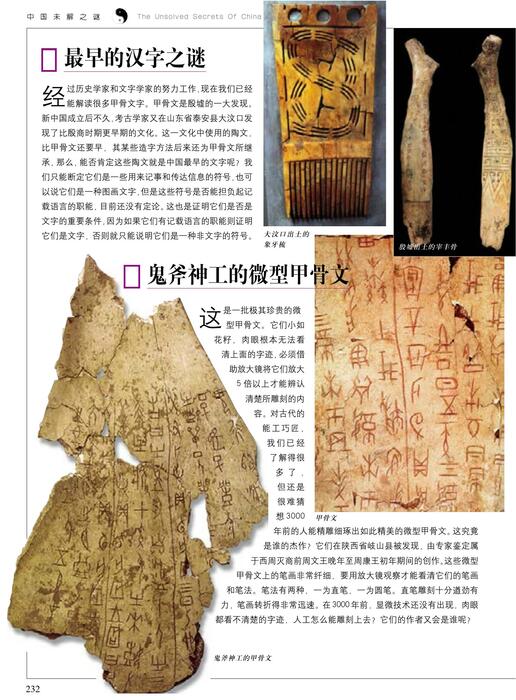 中国未解之谜
The Unsolved Secrets Of China
最早的汉字之谜
经过历史学家和文字学家的努力工作,现在我们已经
能解读很多甲骨文字。甲骨文是殷墟的一大发现。
新中国成立后不久,考古学家又在山东省泰安县大汶口发
现了比殷商时期更早期的文化。这一文化中使用的陶文,
比甲骨文还要早，其某些造字方法后来还为甲骨文所继
承,那么,能否肯定这些陶文就是中国最早的文字呢？我
们只能断定它们是一些用来记事和传达信息的符号,也可
以说它们是一种图画文字,但是这些符号是否能担负起记
载语言的职能,目前还没有定论。这也是证明它们是否是
文字的重要条件,因为如果它们有记载语言的职能则证明
它们是文字，否则就只能说明它们是一种非文字的符号。
大汶口出土的
象牙梳
殷墟出土的宰丰骨
鬼斧神工的微型甲骨文
这是一批极其珍贵的微
型甲骨文。它们小如
花籽，肉眼根本无法看
清上面的字迹,必须借
助放大镜将它们放大
5倍以上才能辨认
清楚所雕刻的内
容。对古代的
能工巧匠，
我们已经
了解得很
多了，
但还是
很难猜
想3000
年前的人能精雕细琢出如此精美的微型甲骨文。这究竟
是谁的杰作？它们在陕西省岐山县被发现，由专家鉴定属
于西周灭商前周文王晚年至周康王初年期间的创作。这些微型
甲骨文上的笔画非常纤细，要用放大镜观察才能看清它们的笔画
和笔法。笔法有两种，一为直笔，一为圆笔。直笔雕刻十分遒劲有
力，笔画转折得非常迅速。在3000年前，显微技术还没有出现，肉眼
都看不清楚的字迹，人工怎么能雕刻上去？它们的作者又会是谁呢？
甲骨文
鬼斧神工的甲骨文
232